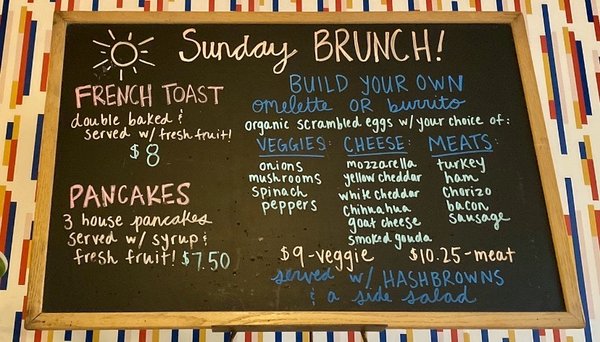 Sunday BRUNCH!
FRENCH TOAST
double baked &
served w/ fresh fruit!
$8
PANCAKES
3 house pancakes
served w/ syrup &
fresh fruit! $7.50
BUILD YOUR OWN
omelette OR burrito
organic scrambled eggs w/ your choice of:
VEGGIES:
onions
mushrooms
spinach
peppers
CHEESE:
mozzarella
yellow cheddar
white cheddar
chihuahua
goat cheese
smoked gouda
MEATS:
turkey
ham
chorizo
bacon
sausage
$9-veggie $10.25-meat
served w/ HASHBROWNS
& a side salad